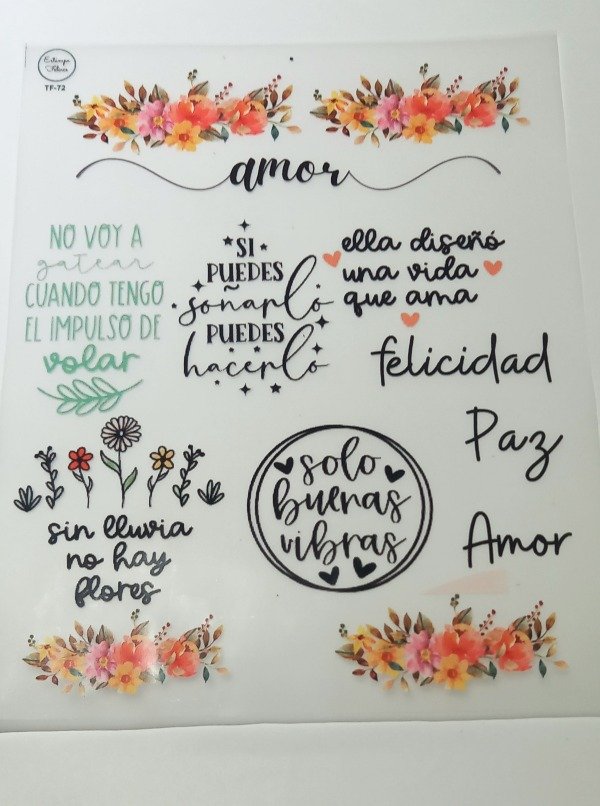 Estampa
Felices
TF-72
amor
NO VOY A
gatear
CUANDO TENGO
EL IMPULSO DE
volar
SI
PUEDES
soñarlo
PUEDES
hacerlo
ella diseñó
una vida
que ama
felicidad
Paz
Amor
sin lluvia
no hay
flores
solo
buenas
vibras